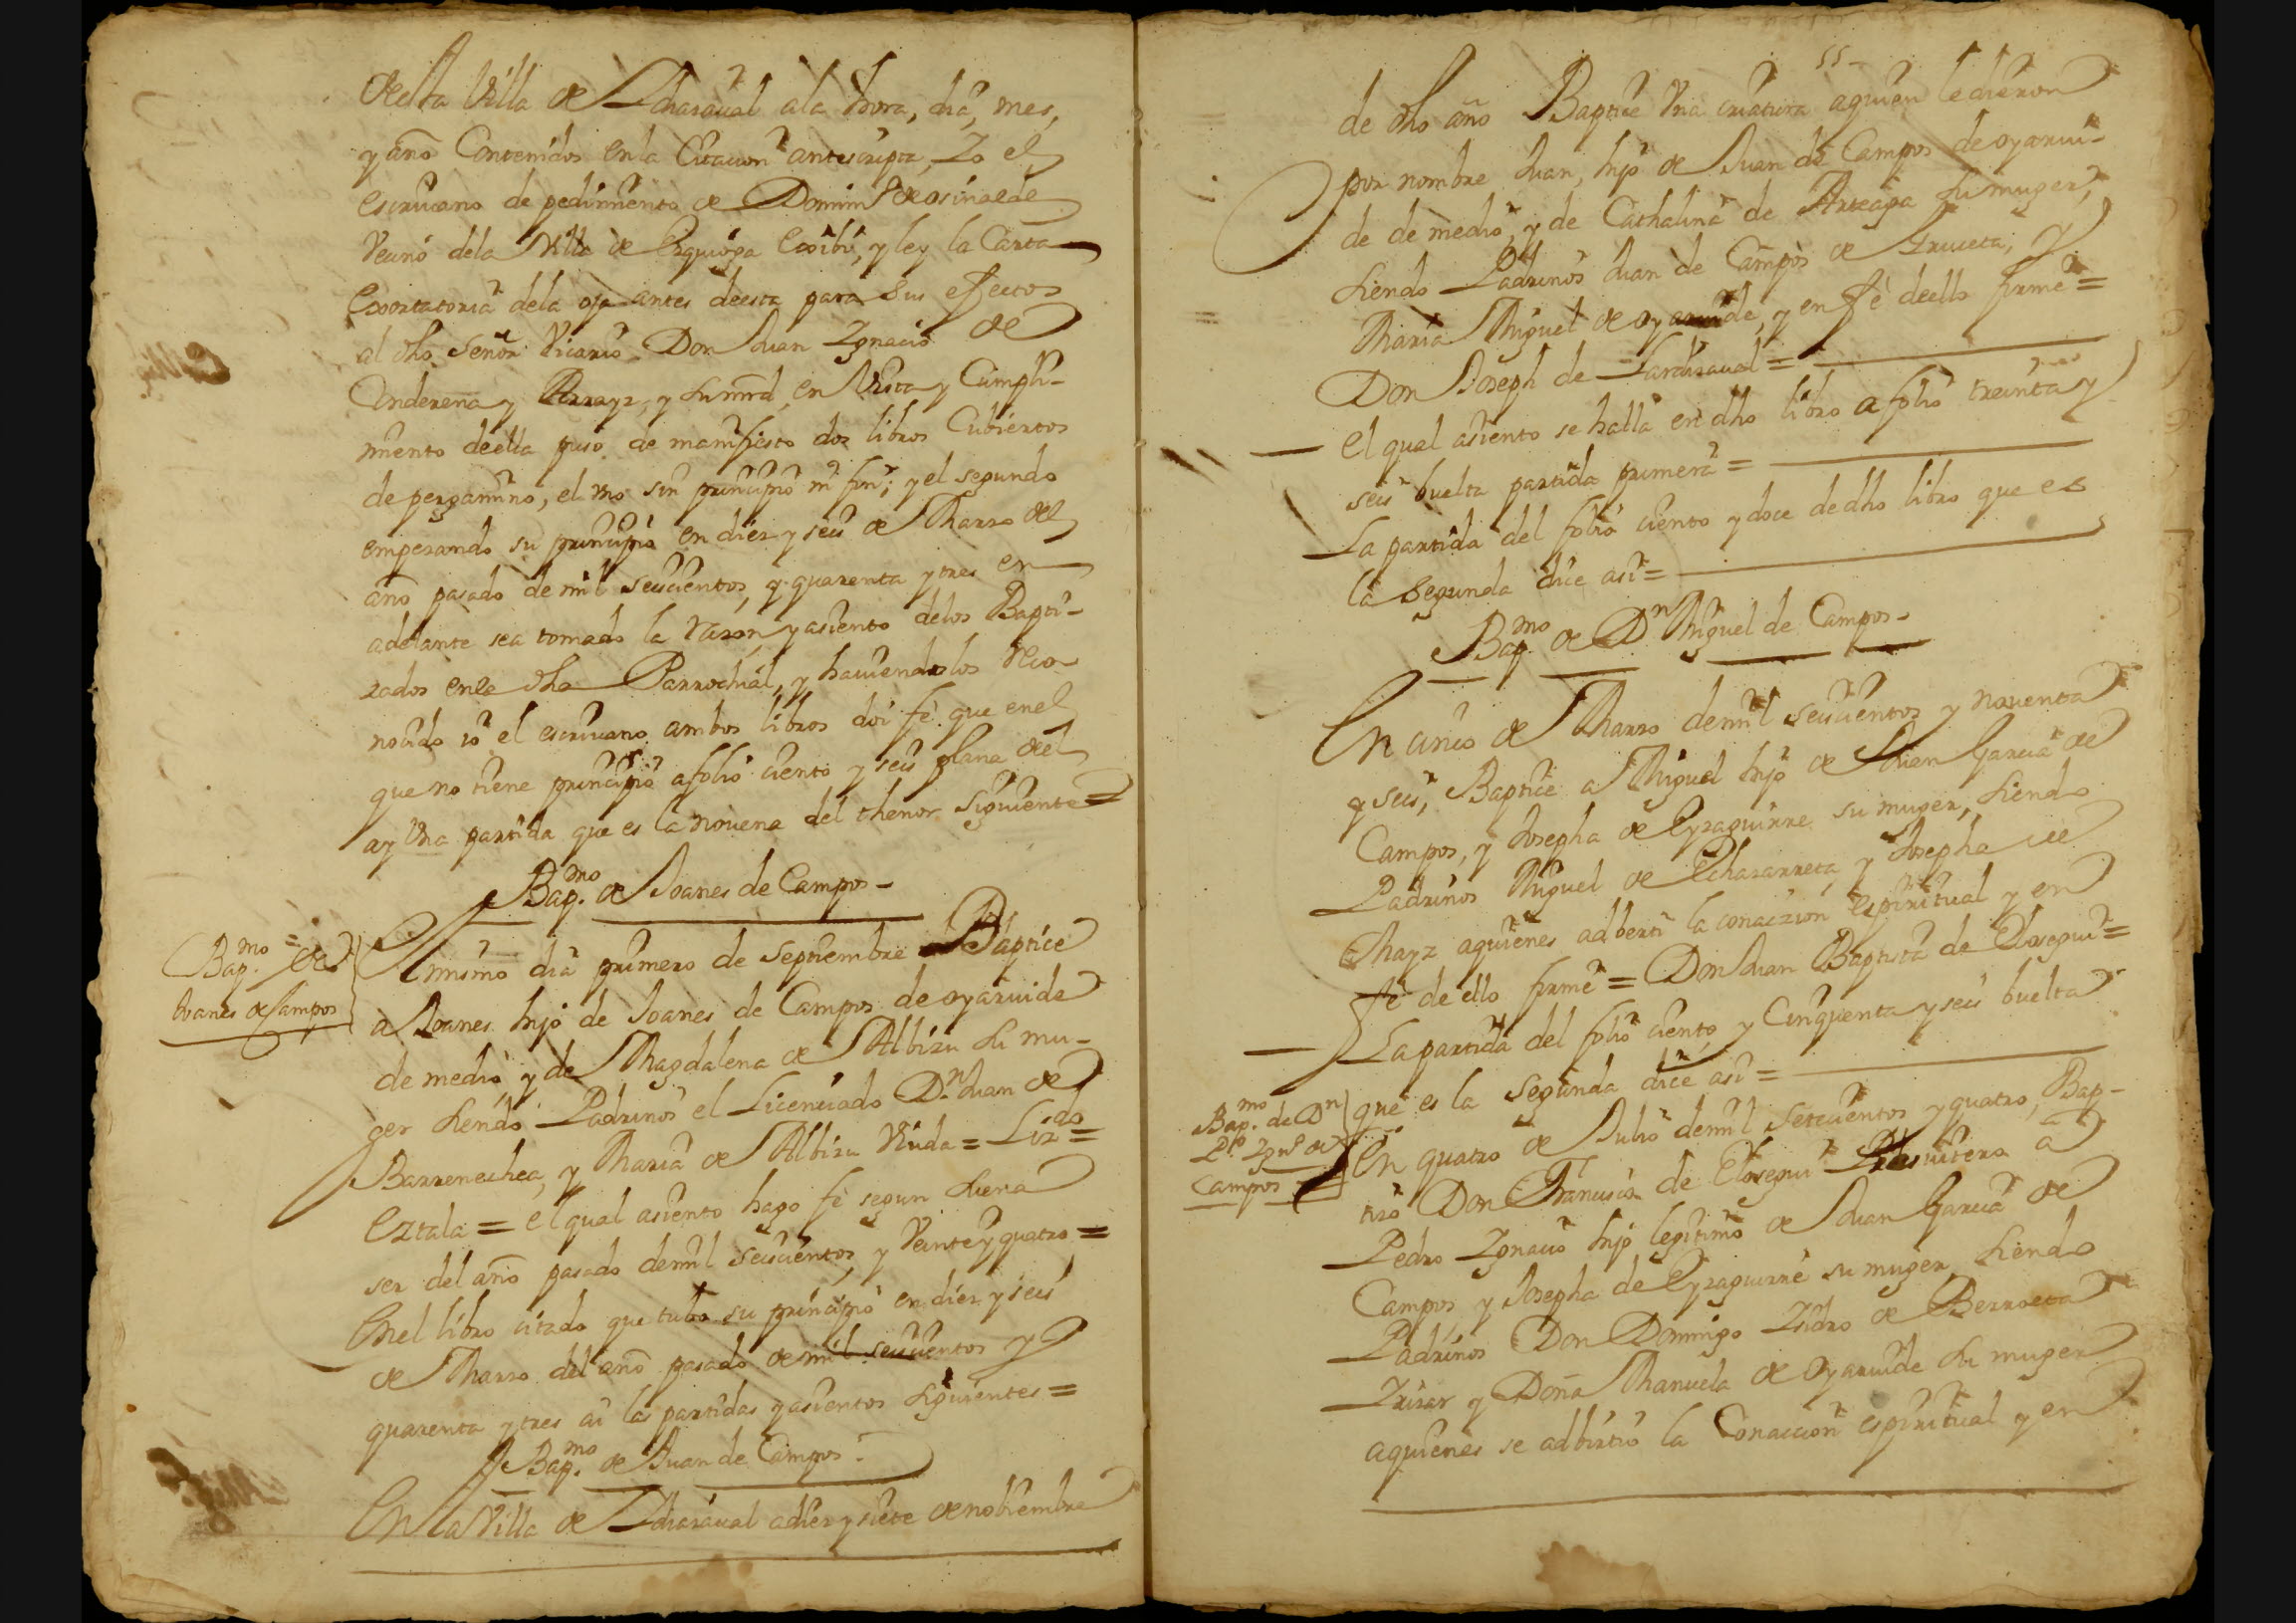 desta Villa de Ydiazaual ala hora, dia, mes,
y año Contenidos en la Citacion antescripta, Yo el
escriuano de pedimiento de Domingo de osinalde
Vecino dela Villa de Ezquioga Exsibi, y ley la Carta
Exortatoria dela oja antes deesta para sus efectos
al dho Señor Vicario Don Juan Ygnacio de
Vndereña y Arrayz, y su mrd, en Vista y Cumpli-
miento deella puso de manifiesto dos libros Cubiertos
de pergamino, el vno sin principio ni fin; y el segundo
empezando su principio en diez y seis de Marzo del
año pasado de mil seiscientos, y quarenta y tres en
adelante sea tomado la razon, y asiento delos Bapti-
zados enla dha Parrochial, y hauiendolos Reco-
nocido io el escriuano ambos libros doi fè que enel
que no tiene principio a folio ciento y seis plana del
ay Vna partida que es la nouena del thenor Siguiente =
Bap.mo de Joanes de Campos -
Bap.mo = de
Joanes de Campos
El mismo dia primero de Septiembre Baptice
a Joanes hijo de Joanes de Campos de oyaruide
de medio, y de Magdalena de Albizu su mu-
ger siendo Padrinos el Licenciado Dn Juan de
Barrenechea, y Maria de Albizu Viuda = Lizdo =
Eztala = el qual asiento hago fè segun suena
ser del año pasado demil seiscientos, y Veinte y quatro =
Enel libro citado que tubo su principio en diez y seis
de Marzo del año pasado de mil seiscientos y
quarenta y tres ai las partidas y asientos Siguientes =
Bap.mo de Juan de Campos.
En la Villa de Ydiazaual adiez y siete de nobiembre
55-
de dho año Baptice Vna criatura aquien le dieron
por nombre Juan, hijo de Juan de Campos de oyarui-
de de medio, y de Cathalina de Arteaga su muger,
siendo Padrinos Juan de Campos de Yrueta, y
Maria Miguel de oyaruide, y en fè deello firmè =
Don Joseph de Yardizaual =
El qual asiento se halla en dho libro a folio treinta y
seis buelta partida primera =
La partida del folio ciento y doce de dho libro que es
la Segunda dice asi =
Bap.mo de Dn Miguel de Campos -
En cinco de Marzo demil seiscientos y nouenta
y seis, Baptice a Miguel hijo de Juan Garcia de
Campos, y Josepha de Eyzaguirre su muger, siendo
Padrinos Miguel de Echazarreta, y Josepha de
Mayz aquienes adberti la conaczion espiritual y en
fè de ello firmè = Don Juan Baptista de Elosegui =
La partida del folio ciento, y Cinquenta y seis buelta
que es la Segunda dice asi =
Bap.mo de Dn
P.o Ygn.o de
Campos
En quatro de Julio demil setecientos y quatro, Bap-
tizò Don Francisco de Elosegui Presuitero â
Pedro Ygnacio hijo legitimo de Juan Garcia de
Campos, y Josepha de Eyzaguirre su muger, siendo
Padrinos Don Domingo Ysidro de Berroeta
Yrizar y Doña Manuela de Oyaruide su muger
aquienes se adbirtio la Conaccion espiritual y en